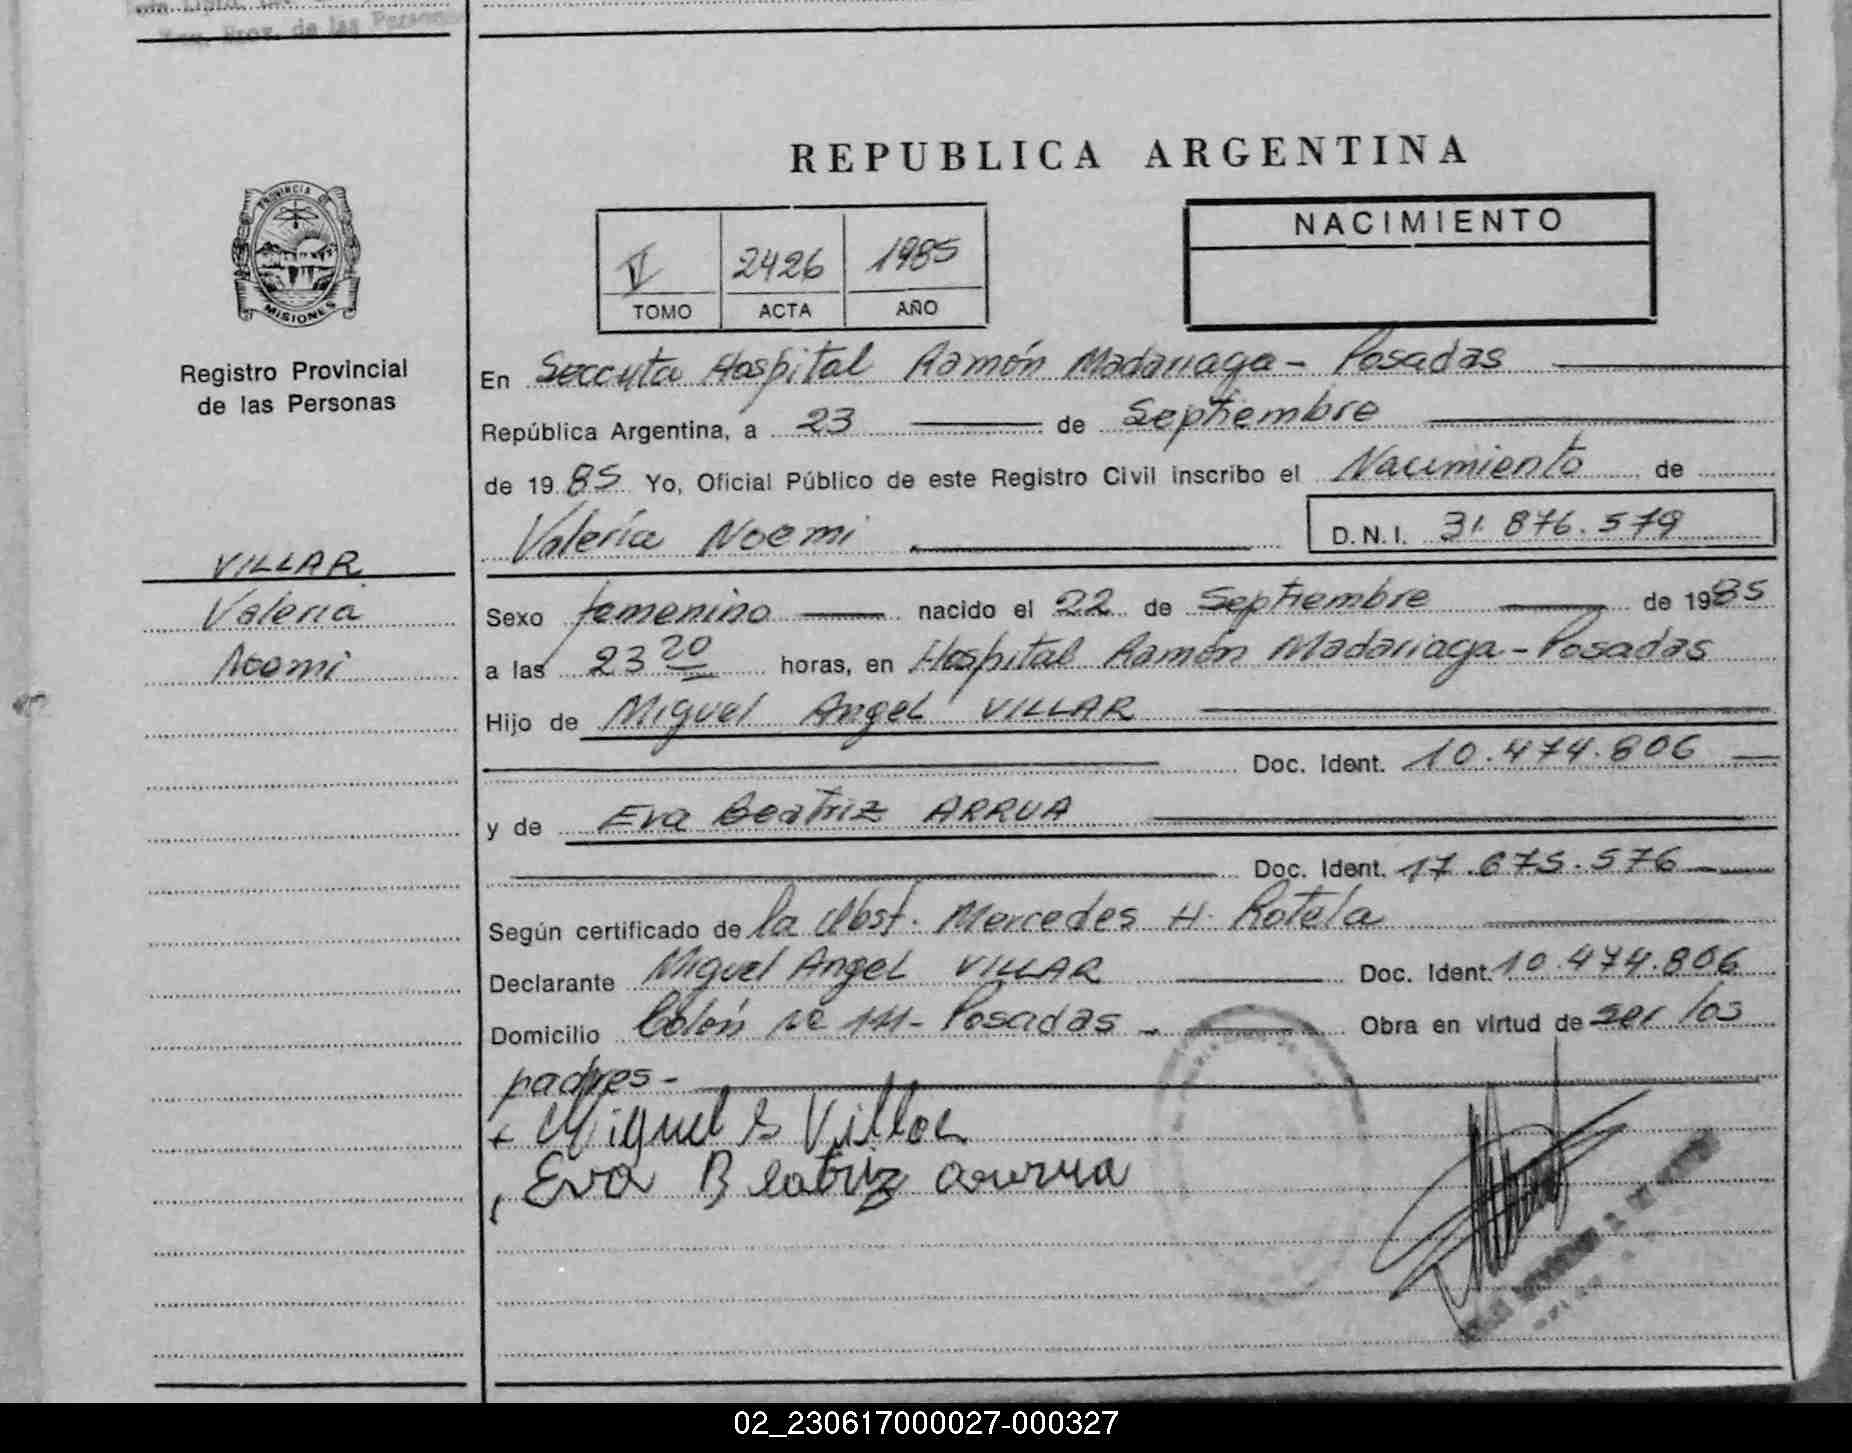 Reg. Prov. de las Personas
REPUBLICA ARGENTINA
PROVINCIA DE
MISIONES
Registro Provincial
de las Personas
2426 1985
TOMO ACTA AÑO
NACIMIENTO
En Seccita Hospital Ramón Madariaga - Posadas
República Argentina, a 23 de Septiembre
de 1985 Yo, Oficial Público de este Registro Civil inscribo el Nacimiento de
Valeria Noemi D.N.I. 31.876.579
VILLAR
Valeria
Noemi
Sexo femenino nacido el 22 de Septiembre de 1985
a las 23 20 horas, en Hospital Ramón Madariaga - Posadas
Hijo de Miguel Angel VILLAR
Doc. Ident. 10.474.806
y de Eva Beatriz ARRUA
Doc. Ident. 17.675.576
Según certificado de la Obst. Mercedes H. Rotela
Declarante Miguel Angel VILLAR Doc. Ident. 10.474.806
Domicilio Colón Nº 111 - Posadas - Obra en virtud de ser los
padres -
Miguel A Villar
Eva Beatriz arrua
02_230617000027-000327